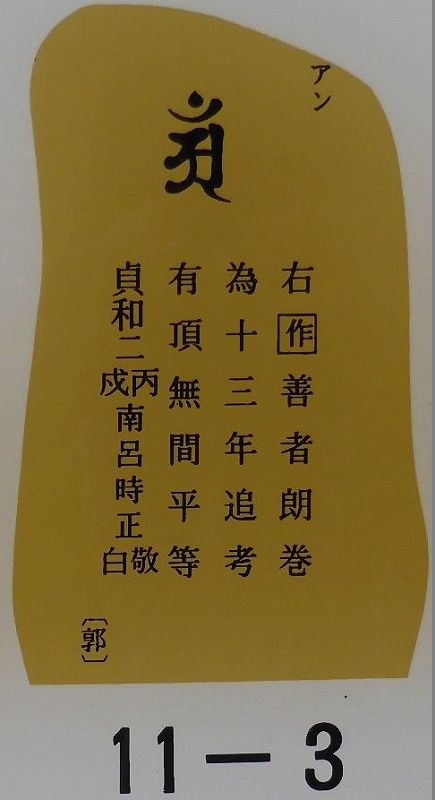 アン
𑖀𑖽
右作善者朗巻
為十三年追考
有頂無間平等
貞和二丙戌南呂時正敬白
〔郭〕
11－3